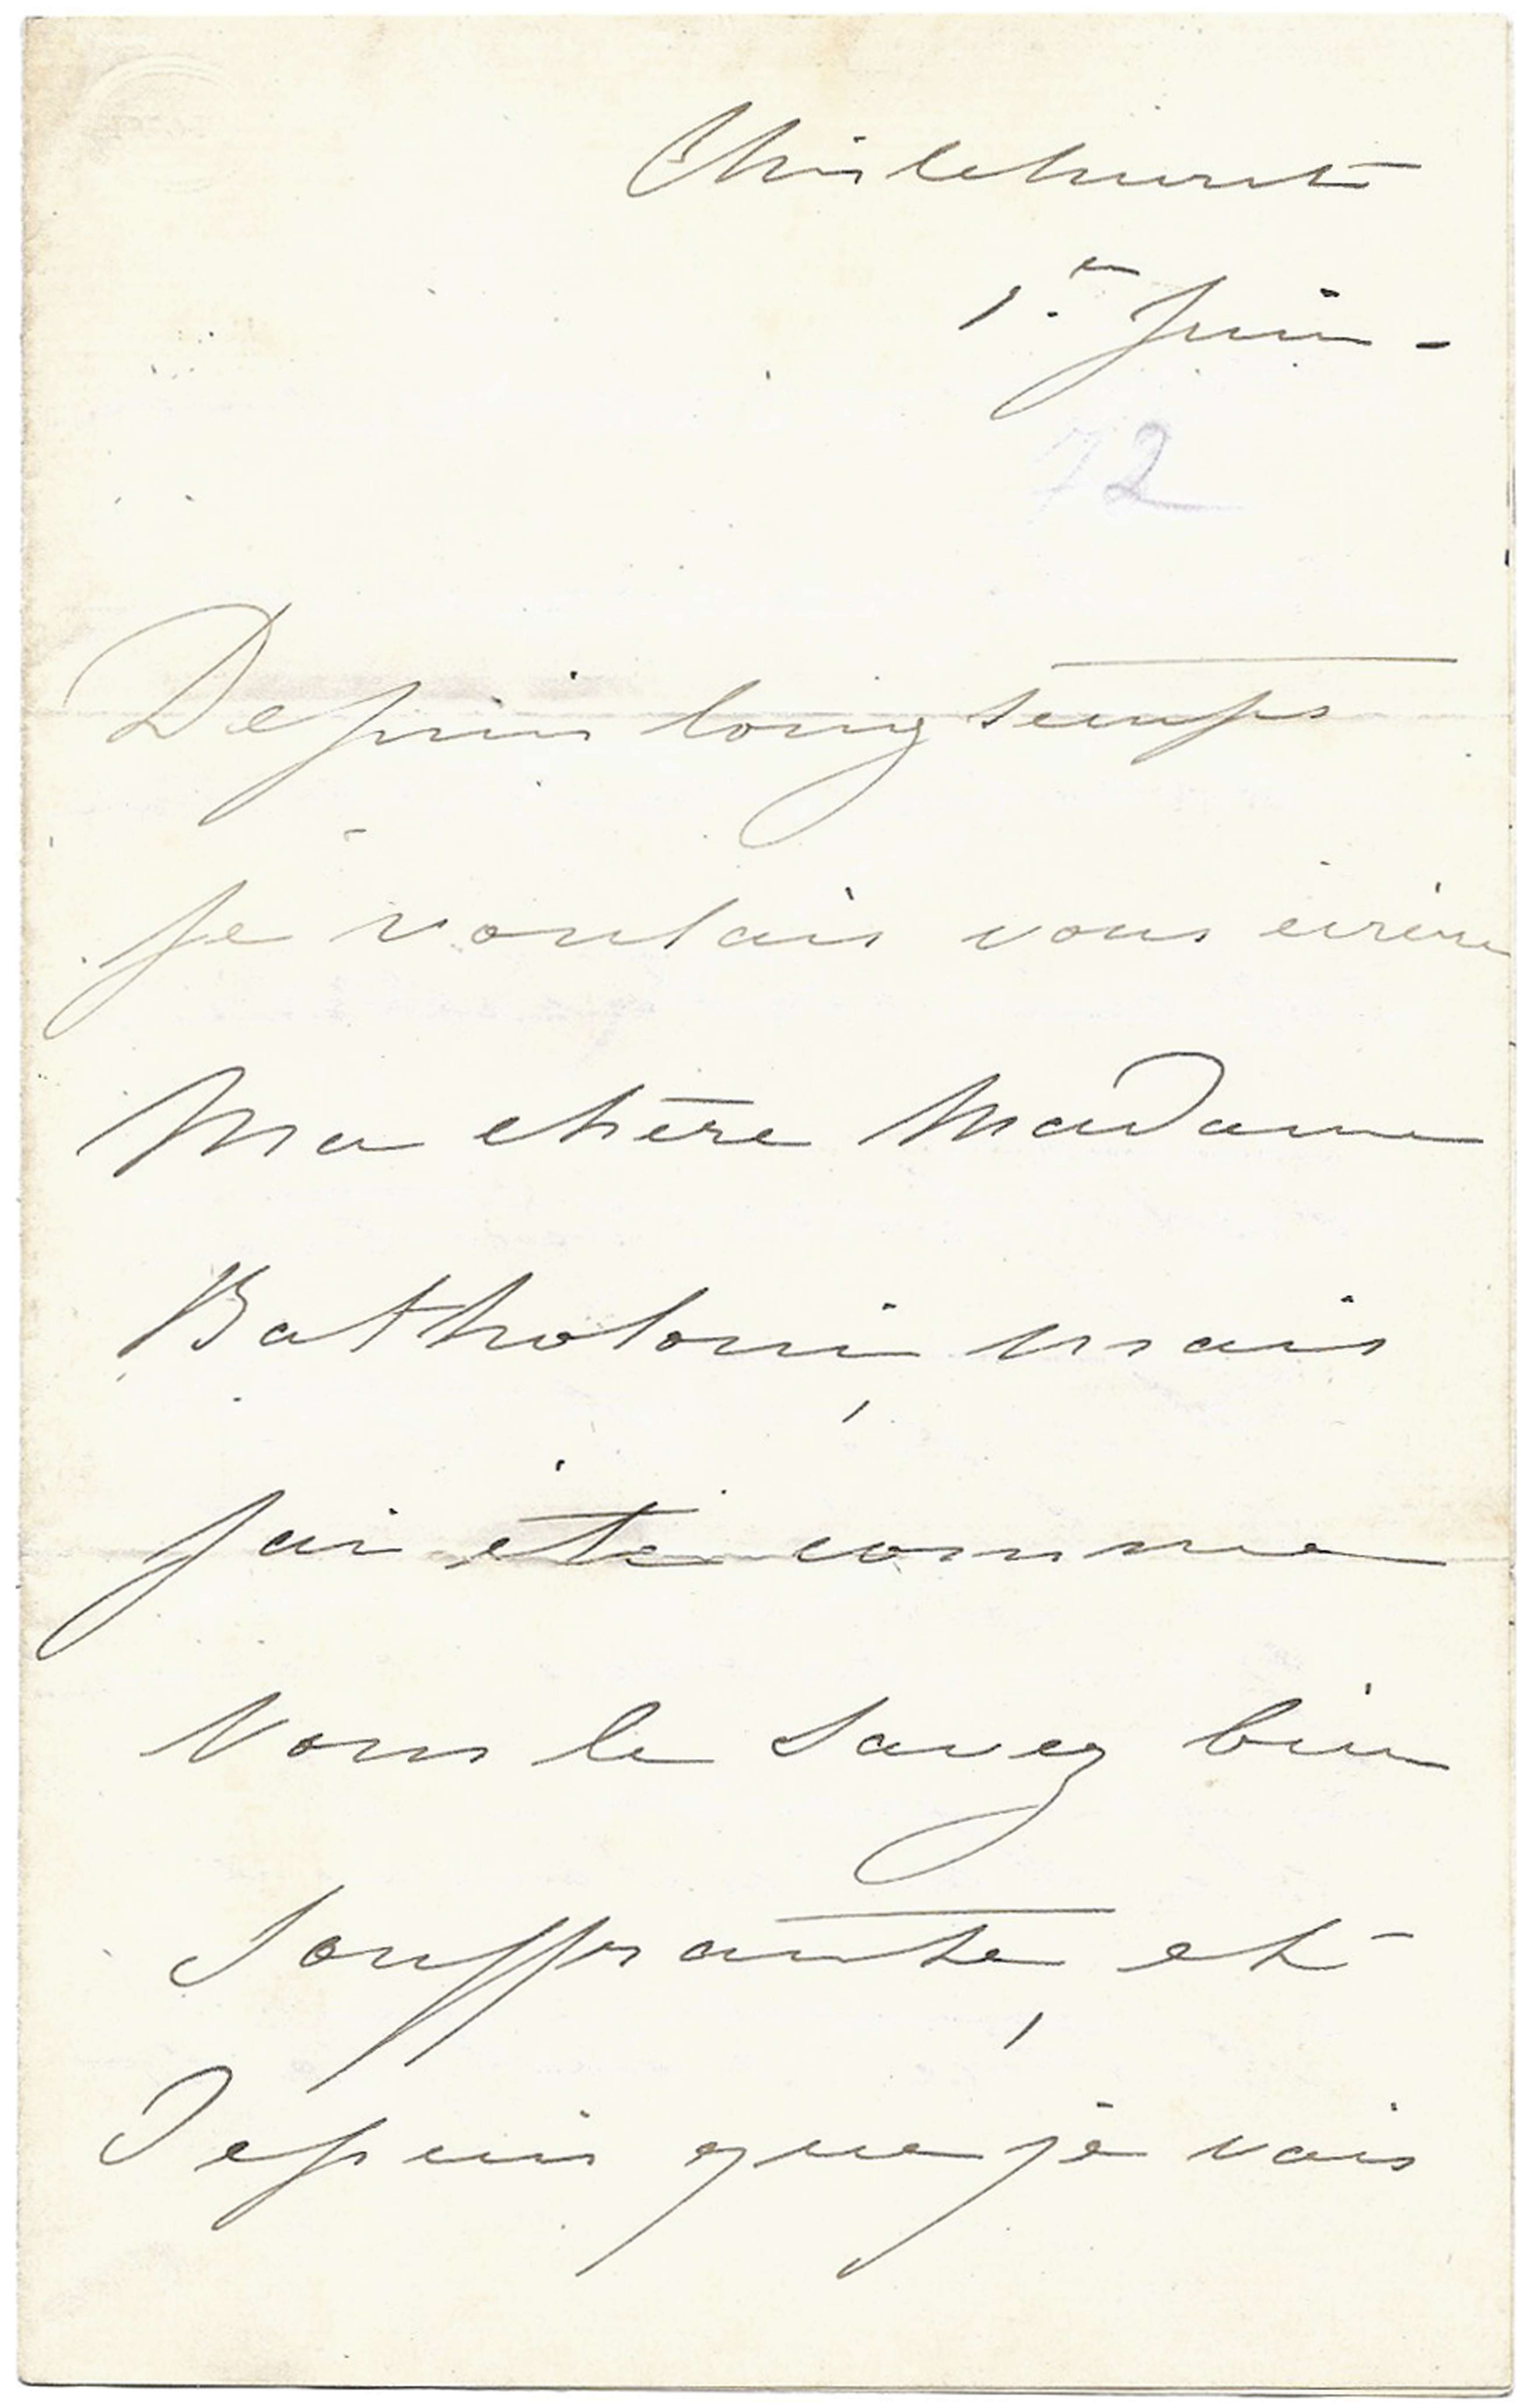 Chislehurst
1er Juin -
72
Depuis longtemps
Je voulais vous écrire
Ma chère Madame
Batholoni, mais
J'ai été comme
Vous le savez bien
Souffrante, et
Depuis que je vais